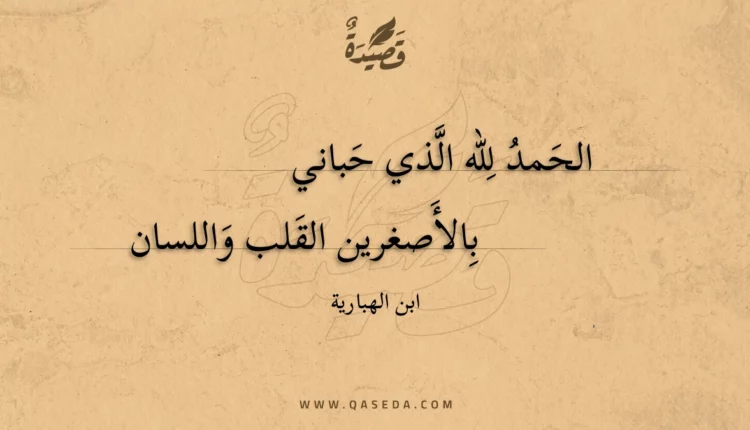 قَصِيْدَةٌ
الحَمدُ لِلّه الَّذي حَباني
بِالأَصغرين القَلب وَاللسان
ابن الهبارية
WWW.QASEDA.COM